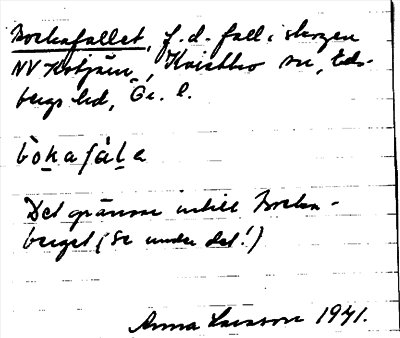 Bockafallet, f.d. fall i skogen
NV Kvitjärn, Kvistbro sn, Eds-
bergs hd, Ör. l.
bòkafàla
Det gränsar intill Bocka-
berget (Se under det!)
Anna Larsson 1941.